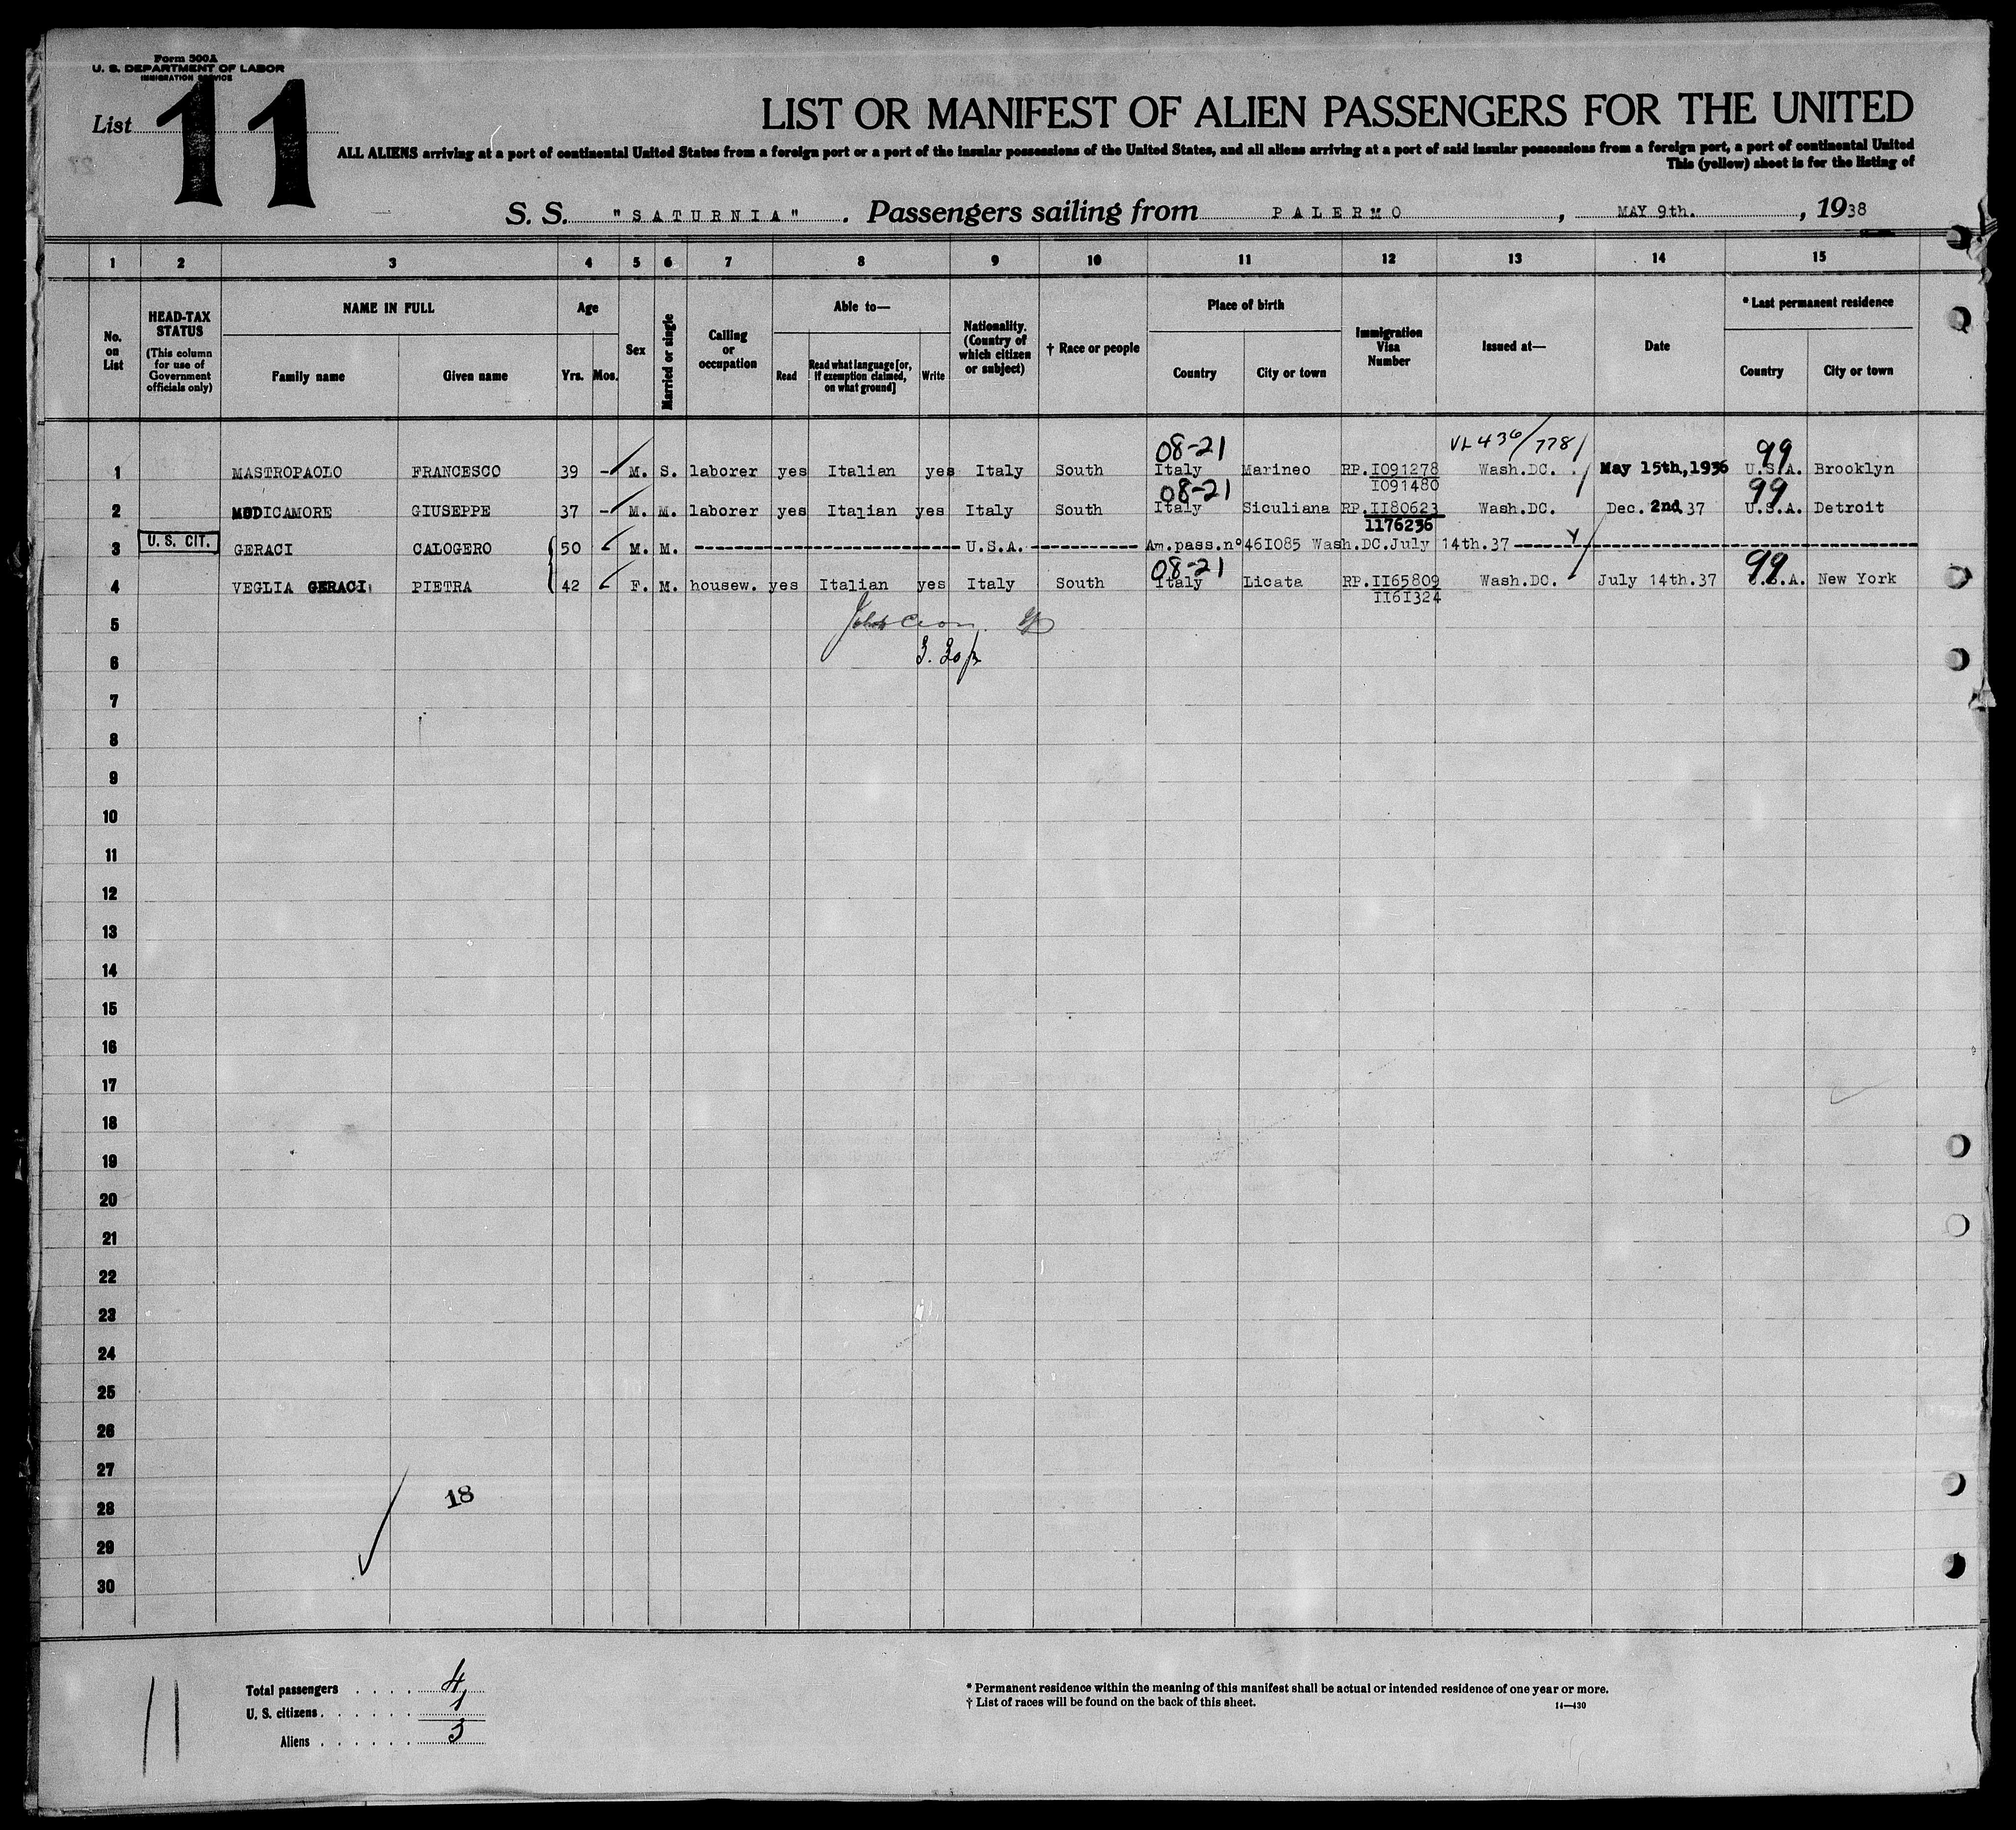 Form 500A
U. S. DEPARTMENT OF LABOR
IMMIGRATION SERVICE
List 11
LIST OR MANIFEST OF ALIEN PASSENGERS FOR THE UNITED
ALL ALIENS arriving at a port of continental United States from a foreign port or a port of the insular possessions of the United States, and all aliens arriving at a port of said insular possessions from a foreign port, a port of continental United
This (yellow) sheet is for the listing of
S. S. "SATURNIA" . Passengers sailing from PALERMO , MAY 9th. , 1938
1 2 3 4 5 6 7 8 9 10 11 12 13 14 15
No. on List
HEAD-TAX STATUS (This column for use of Government officials only)
NAME IN FULL
Family name Given name
Age
Yrs. Mos.
Sex
Married or single
Calling or occupation
Able to—
Read Read what language [or, if exemption claimed, on what ground] Write
Nationality. (Country of which citizen or subject)
† Race or people
Place of birth
Country City or town
Immigration Visa Number
Issued at—
Date
* Last permanent residence
Country City or town
08-21 VL 436/778 99
1 MASTROPAOLO FRANCESCO 39 - M. S. laborer yes Italian yes Italy South Italy Marineo RP.I091278 Wash.DC. May 15th,1936 U.S.A. Brooklyn
I091480
08-21 99
2 MODICAMORE GIUSEPPE 37 - M. M. laborer yes Italian yes Italy South Italy Siculiana RP.II80623 Wash.DC. Dec. 2nd 37 U.S.A. Detroit
1176236
3 U. S. CIT. GERACI CALOGERO 50 - M. M. U.S.A. Am.pass.n°461085 Wash.DC.July 14th.37
08-21 99
4 VEGLIA GERACI PIETRA 42 - F. M. housew. yes Italian yes Italy South Italy Licata RP.II65809 Wash.DC. July 14th.37 U.S.A. New York
II61324
5
6
7
8
9
10
11
12
13
14
15
16
17
18
19
20
21
22
23
24
25
26
27
28 18
29
30
11
Total passengers . . . . 4
U. S. citizens . . . . . . 1
Aliens . . . . . . 3
* Permanent residence within the meaning of this manifest shall be actual or intended residence of one year or more.
† List of races will be found on the back of this sheet.
14—430